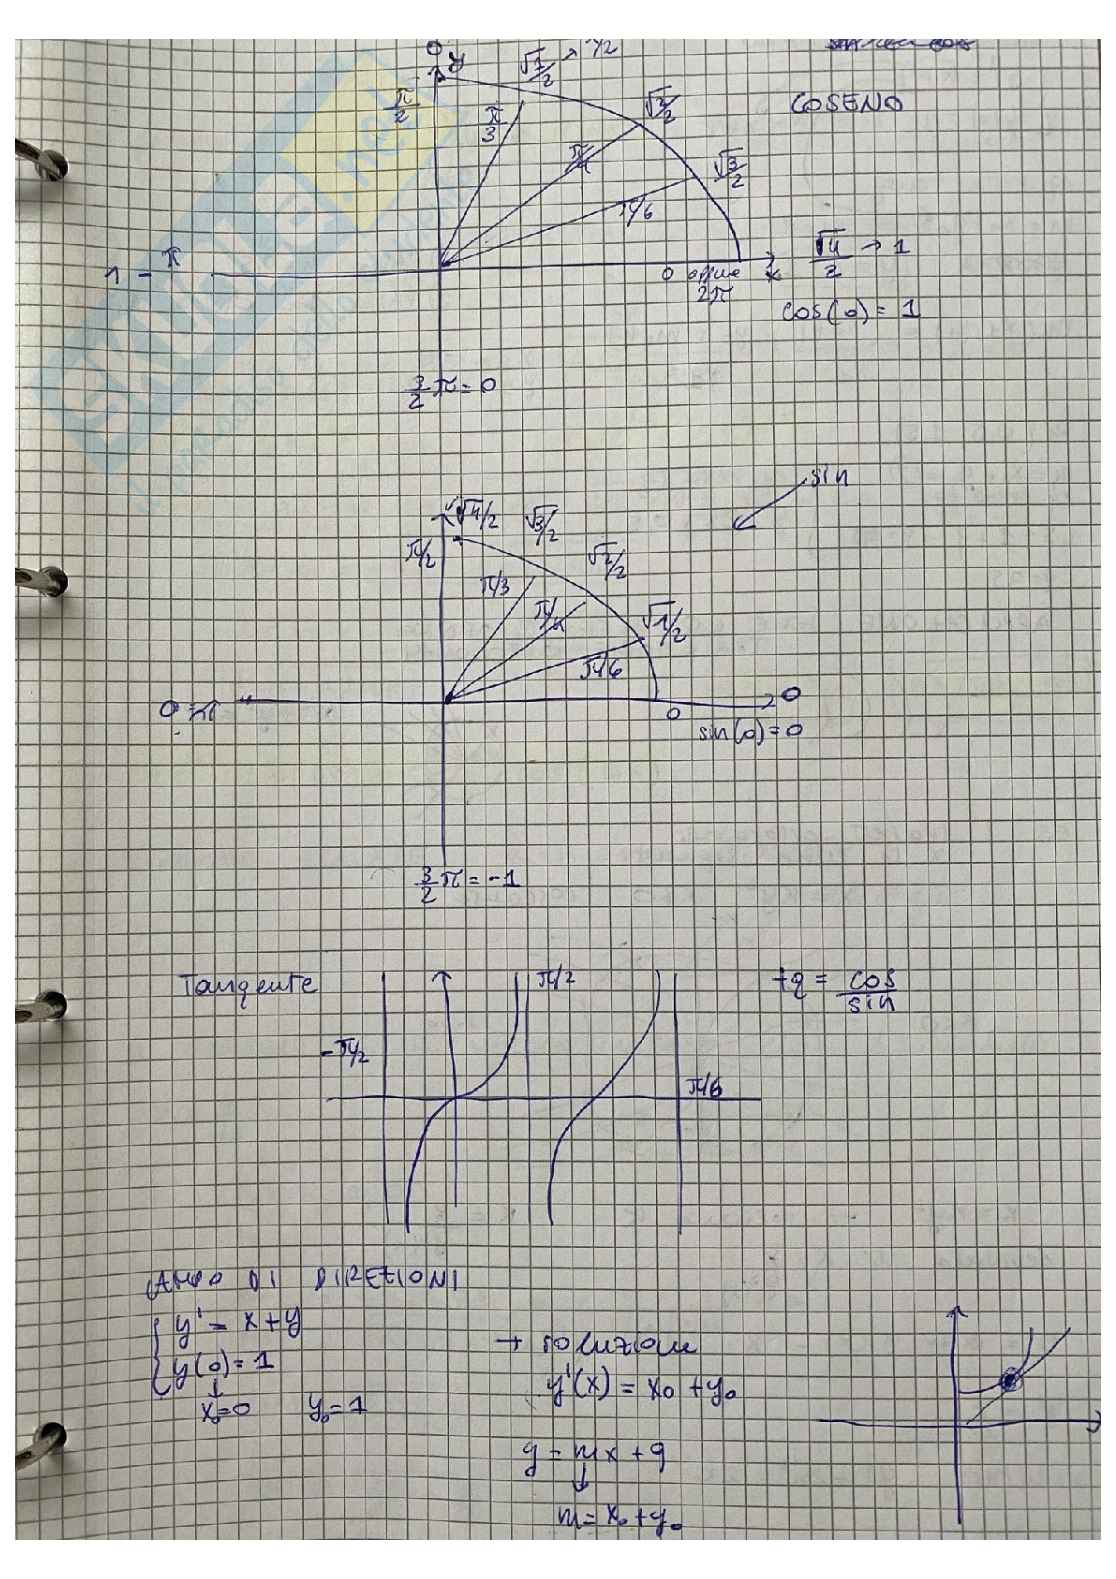 0
y
√1/2 → 1/2
COSENO
π/2
π/3
√2/2
π/4
√3/2
π/6
1 - π
0 oppure 2π
x
√4/2 → 1
cos(0) = 1
3/2 π = 0
sin
√4/2
√3/2
π/2
√2/2
π/3
π/4
√1/2
π/6
0 π
0
0
sin(0) = 0
3/2 π = -1
Tangente
π/2
tg = cos/sin
-π/2
π/6
CAMPO DI DIREZIONI
y' = x + y
y(0) = 1
↓
x₀ = 0 y₀ = 1
→ soluzione
y'(x) = x₀ + y₀
y = mx + q
↓
m = x₀ + y₀
SKUOLA.net